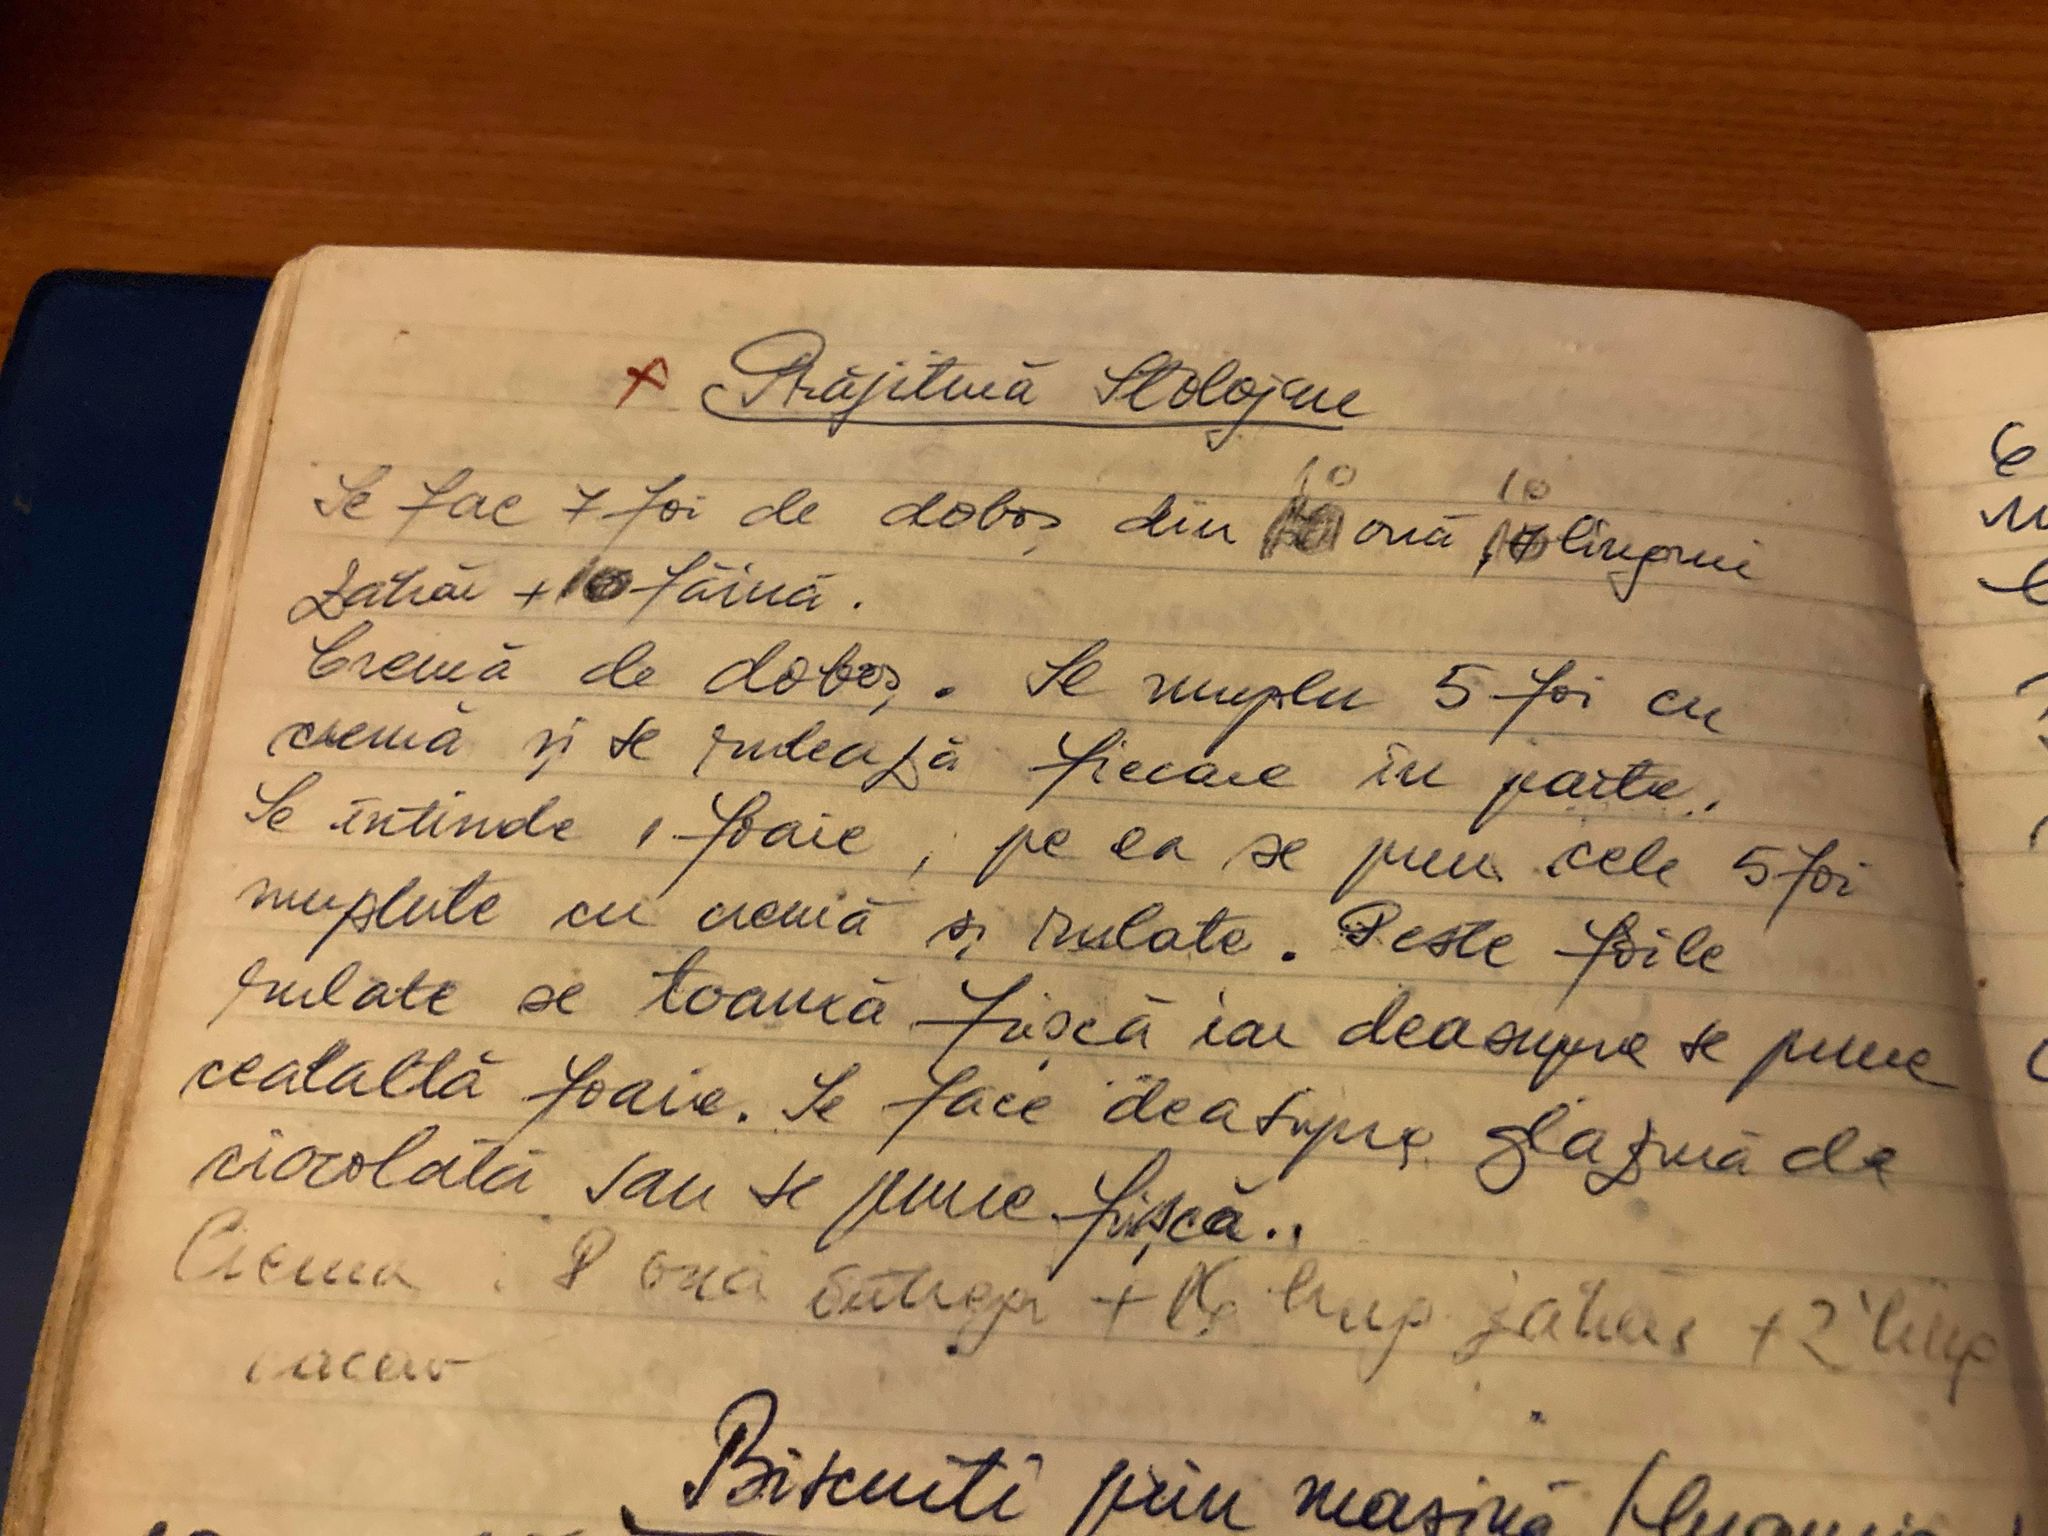 x Prăjitură Stolojan
10 10
Se fac 7 foi de doboș din ouă linguri
zahăr + 10 făină.
Cremă de doboș. Se umplu 5 foi cu
cremă și se rulează fiecare în parte.
Se întinde 1 foaie, pe ea se pun cele 5 foi
umplute cu cremă și rulate. Peste foile
rulate se toarnă frișcă iar deasupra se pune
cealaltă foaie. Se face deasupra glazură de
ciocolată sau se pune frișcă..
Crema : 8 ouă întregi + ling zahăr + 2 ling
cacao
Biscuiti prin masină